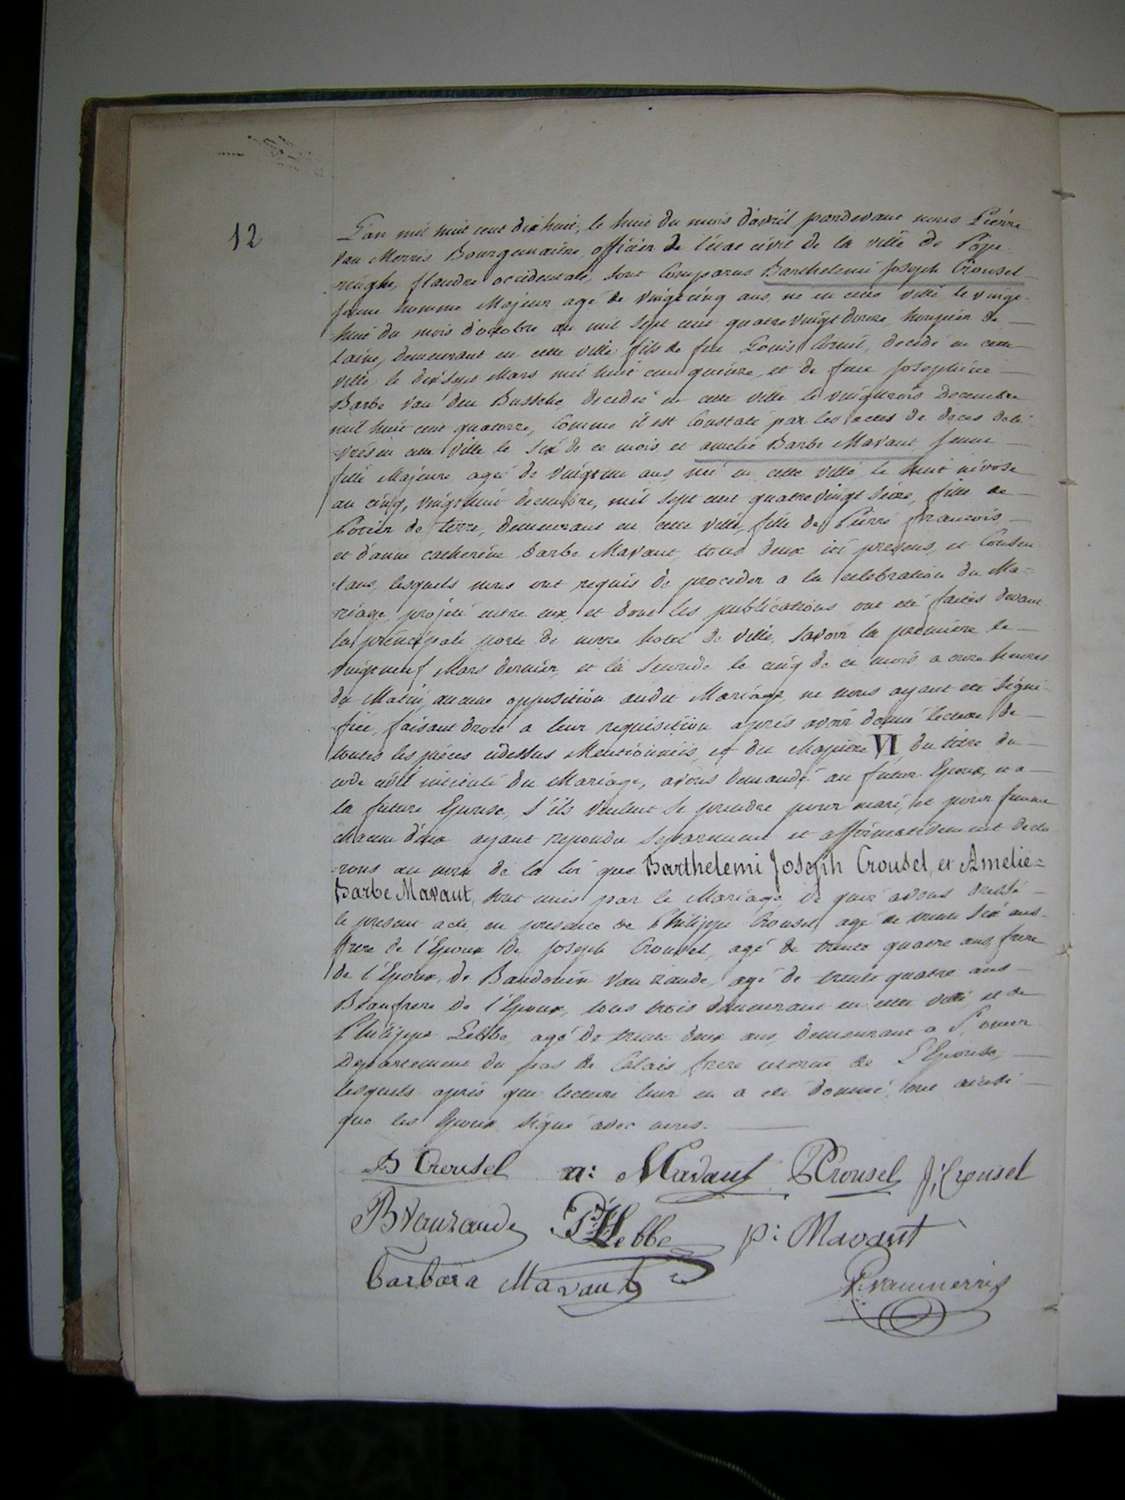 12
L'an mil huit cent dix huit, le huit du mois d'avril pardevant nous Pierre
van Merris Bourguemaitre, officier de l'état civil de la ville de Pope-
ringhe, flandre occidentale, sont Comparus Barthelemi Joseph Crousel
jeune homme Majeur agé de vingt cinq ans, né en cette ville le vingt-
huit du mois d'octobre de mil sept cent quatre vingt douze,
laine, demeurant en cette ville fils de feu Louis, décédé en cette
ville le dix sept Mars mil huit cent quinze, et de feue Josephine
Barbe Van den Bussche decedée en cette ville le vingt trois Decembre
mil huit cent quatorze, Comme il est Constaté par les actes de deces deli-
vrés en cette ville le Six de ce mois et amelie Barbe Mavaut Jeune
fille Majeure agée de vingt un ans, née en cette ville le huit nivose
an cinq, vingt huit decembre, mil sept cent quatre vingt seize, fille de
Potier de terre, demeurant en cette ville, fille de Pierre francois
et d'anne catherine barbe Mavaut, tous deux ici presens, et Consen-
tans, lesquels nous ont requis de proceder a la celebration du Ma-
riage projeté entre eux, et dont les publications ont été faites devant
la principale porte de notre hotel de ville, Savoir la premiere le
vingt neuf Mars dernier, et la seconde le cinq de ce mois a onze heures
du Matin, aucune opposition audit Mariage ne nous ayant été signi-
fiée, faisant droit a leur requisition après avoir donné lecture de
toutes les pièces cidessus Mentionnées, et du Chapitre VI du titre du
code civil intitulé du Mariage, avons demandé au futur Epoux, et a
la future Epouse, s'ils veulent se prendre pour mari, et pour femme
chacun d'eux ayant repondu Separement et affirmativement decla-
rons au nom de la loi que Barthelemi Joseph Crousel, et Amelie=
Barbe Mavaut, sont unis par le Mariage, de quoi avons dressé
le present acte en presence de Philippe Crousel agé de trente six ans
frere de l'Epoux de Joseph Crousel, agé de trente quatre ans, frere
de l'Epoux, de Baudouin Van Zande, agé de trente quatre ans
Beaufrere de l'Epoux, tous trois demeurant en cette ville et de
Philippe Lebbe agé de trente deux ans, demeurant a St omer
Departement du pas de Calais frere uterin de L'Epouse,
lesquels après que lecture leur en a été donnée, ont ainsi
que les Epoux Signé avec nous.
B Crousel a: Mavaut P Crousel J: Crousel
B Vanzande PH Lebbe p: Mavaut
barbara Mavaut P. vanmerris